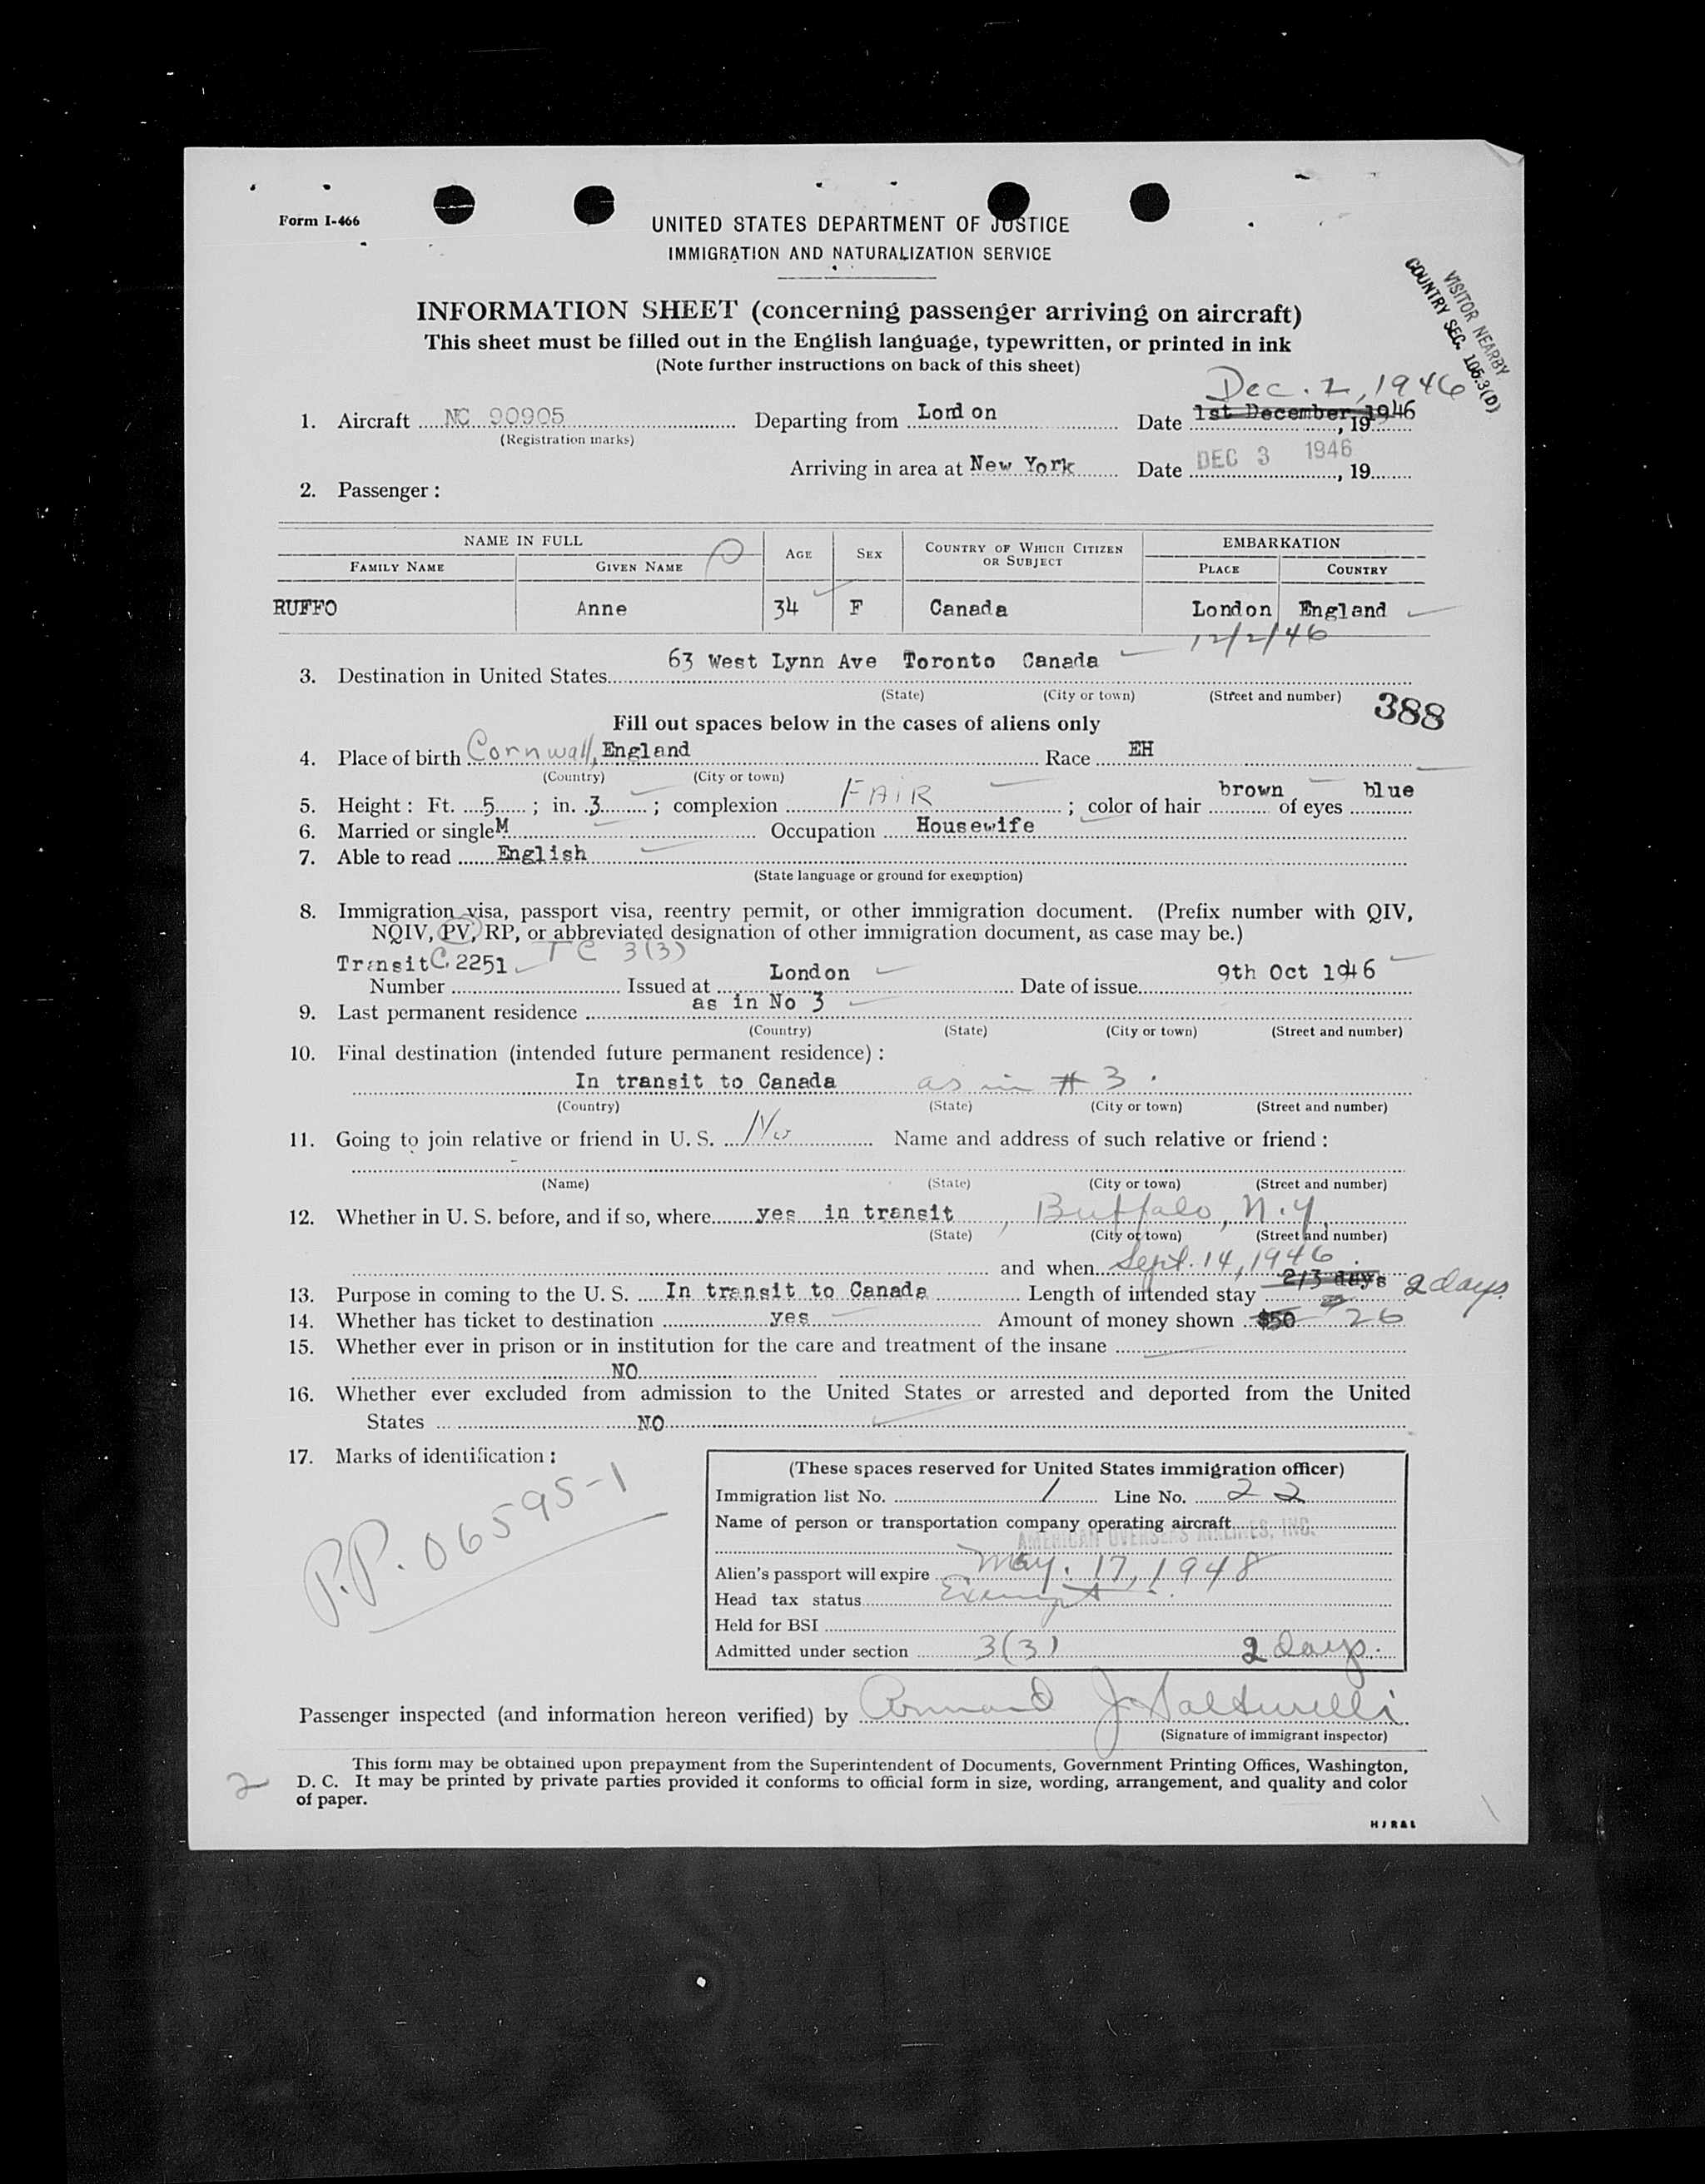 Form I-466
UNITED STATES DEPARTMENT OF JUSTICE
IMMIGRATION AND NATURALIZATION SERVICE
VISITOR NEARBY
COUNTRY SEC. 105.3(D)
INFORMATION SHEET (concerning passenger arriving on aircraft)
This sheet must be filled out in the English language, typewritten, or printed in ink
(Note further instructions on back of this sheet)
Dec. 2, 1946
1. Aircraft NC 90905 Departing from London Date 1st December, 1946
(Registration marks)
Arriving in area at New York Date DEC 3 1946, 19
2. Passenger:
NAME IN FULL AGE SEX COUNTRY OF WHICH CITIZEN OR SUBJECT EMBARKATION
FAMILY NAME GIVEN NAME PLACE COUNTRY
RUFFO Anne 34 F Canada London England
12/2/46
63 West Lynn Ave Toronto Canada
3. Destination in United States
(State) (City or town) (Street and number)
388
Fill out spaces below in the cases of aliens only
4. Place of birth Cornwall, England Race EH
(Country) (City or town)
5. Height: Ft. 5; in. 3; complexion FAIR; color of hair brown of eyes blue
6. Married or single M Occupation Housewife
7. Able to read English
(State language or ground for exemption)
8. Immigration visa, passport visa, reentry permit, or other immigration document. (Prefix number with QIV,
NQIV, PV, RP, or abbreviated designation of other immigration document, as case may be.)
Transit C. 2251 TC 3(3)
Number Issued at London Date of issue 9th Oct 1946
9. Last permanent residence as in No 3
(Country) (State) (City or town) (Street and number)
10. Final destination (intended future permanent residence):
In transit to Canada as in # 3.
(Country) (State) (City or town) (Street and number)
11. Going to join relative or friend in U. S. No Name and address of such relative or friend:
(Name) (State) (City or town) (Street and number)
12. Whether in U. S. before, and if so, where yes in transit, Buffalo, N.Y.
(State) (City or town) (Street and number)
and when Sept. 14, 1946.
13. Purpose in coming to the U. S. In transit to Canada Length of intended stay 2/3 days 2 days.
14. Whether has ticket to destination yes Amount of money shown $50 26
15. Whether ever in prison or in institution for the care and treatment of the insane
NO
16. Whether ever excluded from admission to the United States or arrested and deported from the United
States NO
17. Marks of identification:
P.P. 06595-1
(These spaces reserved for United States immigration officer)
Immigration list No. 1 Line No. 22
Name of person or transportation company operating aircraft
AMERICAN OVERSEAS AIRLINES, INC.
Alien's passport will expire May. 17, 1948
Head tax status Exempt
Held for BSI
Admitted under section 3(3) 2 days.
Passenger inspected (and information hereon verified) by Armand J.
(Signature of immigrant inspector)
This form may be obtained upon prepayment from the Superintendent of Documents, Government Printing Offices, Washington,
D. C. It may be printed by private parties provided it conforms to official form in size, wording, arrangement, and quality and color
of paper.
2
HJR&L